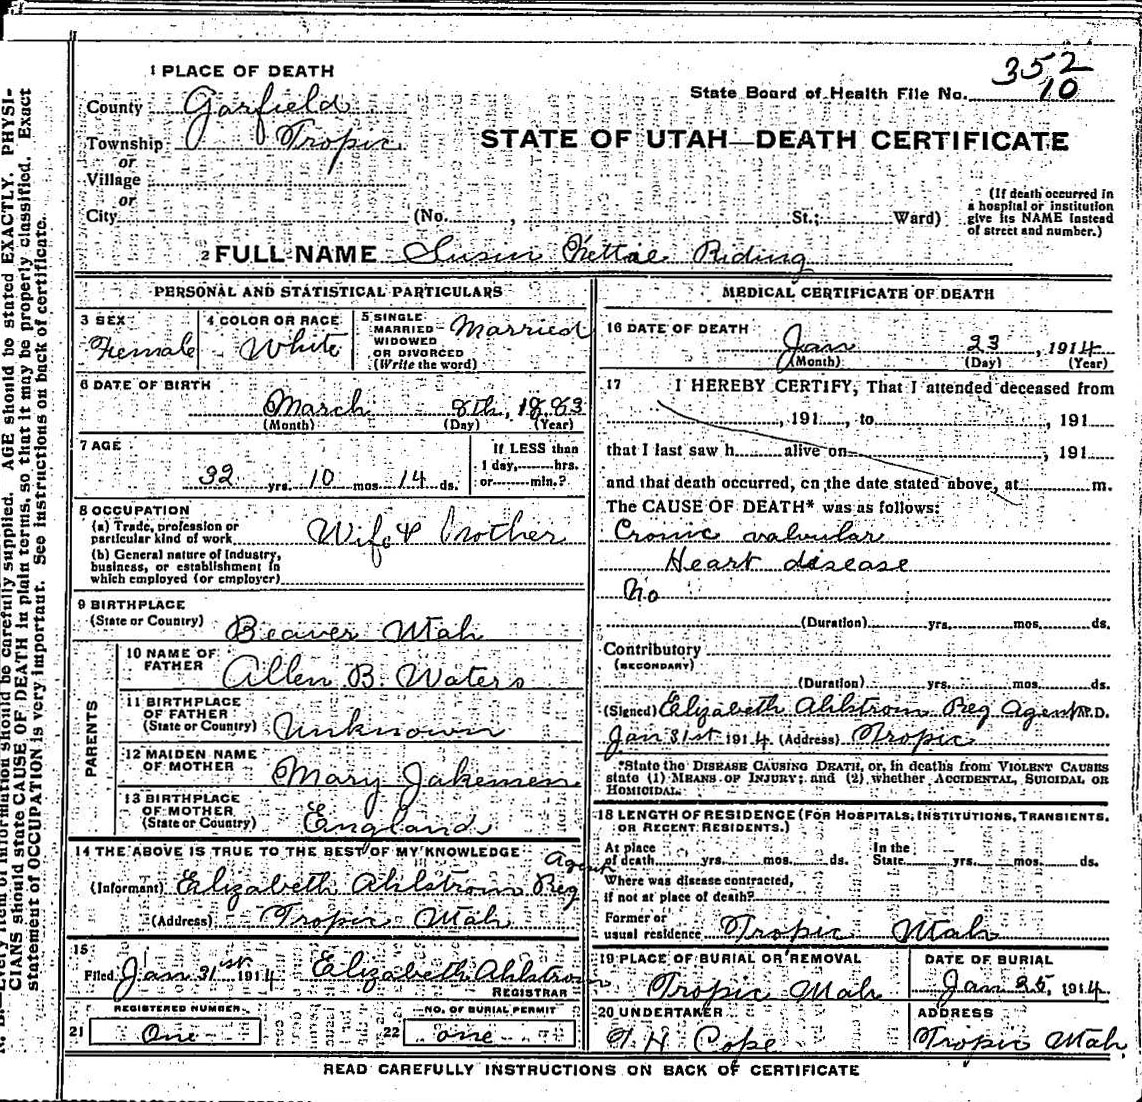 352
10
1 PLACE OF DEATH
State Board of Health File No.
County Garfield
Township Tropic
STATE OF UTAH—DEATH CERTIFICATE
or
Village
or
City (No. , St.; Ward)
(If death occurred in
a hospital or institution
give its NAME instead
of street and number.)
2 FULL NAME Susan Riding
PERSONAL AND STATISTICAL PARTICULARS
3 SEX
Female
4 COLOR OR RACE
White
5 SINGLE
MARRIED
WIDOWED
OR DIVORCED
(Write the word)
Married
6 DATE OF BIRTH
March 8th, 1883
(Month) (Day) (Year)
7 AGE
32 yrs. 10 mos. 14 ds.
If LESS than
1 day, hrs.
or min.?
8 OCCUPATION
(a) Trade, profession or
particular kind of work Wife & Mother
(b) General nature of Industry,
business, or establishment in
which employed (or employer)
9 BIRTHPLACE
(State or Country) Beaver Utah
PARENTS
10 NAME OF
FATHER Allen B. Waters
11 BIRTHPLACE
OF FATHER
(State or Country) Unknown
12 MAIDEN NAME
OF MOTHER Mary Jakemen
13 BIRTHPLACE
OF MOTHER
(State or Country) England
14 THE ABOVE IS TRUE TO THE BEST OF MY KNOWLEDGE
(Informant) Elizabeth Ahlstrom Reg Agent
(Address) Tropic Utah
15
Filed Jan 31st 1914 Elizabeth Ahlstrom
REGISTRAR
REGISTERED NUMBER
21 One
NO. OF BURIAL PERMIT
22 one
MEDICAL CERTIFICATE OF DEATH
16 DATE OF DEATH
Jan 23, 1914
(Month) (Day) (Year)
17 I HEREBY CERTIFY, That I attended deceased from
, 191 , to , 191
that I last saw h alive on , 191
and that death occurred, on the date stated above, at m.
The CAUSE OF DEATH* was as follows:
Cronic valvular
Heart disease
No
(Duration) yrs. mos. ds.
Contributory
(SECONDARY)
(Duration) yrs. mos. ds.
(Signed) Elizabeth Ahlstrom Reg Agent M.D.
Jan 31st 1914 (Address) Tropic
*State the DISEASE CAUSING DEATH, or, in deaths from VIOLENT CAUSES
state (1) MEANS OF INJURY; and (2) whether ACCIDENTAL, SUICIDAL OR
HOMICIDAL.
18 LENGTH OF RESIDENCE (FOR HOSPITALS, INSTITUTIONS, TRANSIENTS,
OR RECENT RESIDENTS.)
At place
of death yrs. mos. ds.
In the
State yrs. mos. ds.
Where was disease contracted,
if not at place of death?
Former or
usual residence Tropic Utah
19 PLACE OF BURIAL OR REMOVAL
Tropic Utah
DATE OF BURIAL
Jan 25, 1914
20 UNDERTAKER
T. H. Cope
ADDRESS
Tropic Utah
READ CAREFULLY INSTRUCTIONS ON BACK OF CERTIFICATE
Every item of information should be carefully supplied. AGE should be stated EXACTLY. PHYSI-
CIANS should state CAUSE OF DEATH in plain terms, so that it may be properly classified. Exact
statement of OCCUPATION is very important. See instructions on back of certificate.